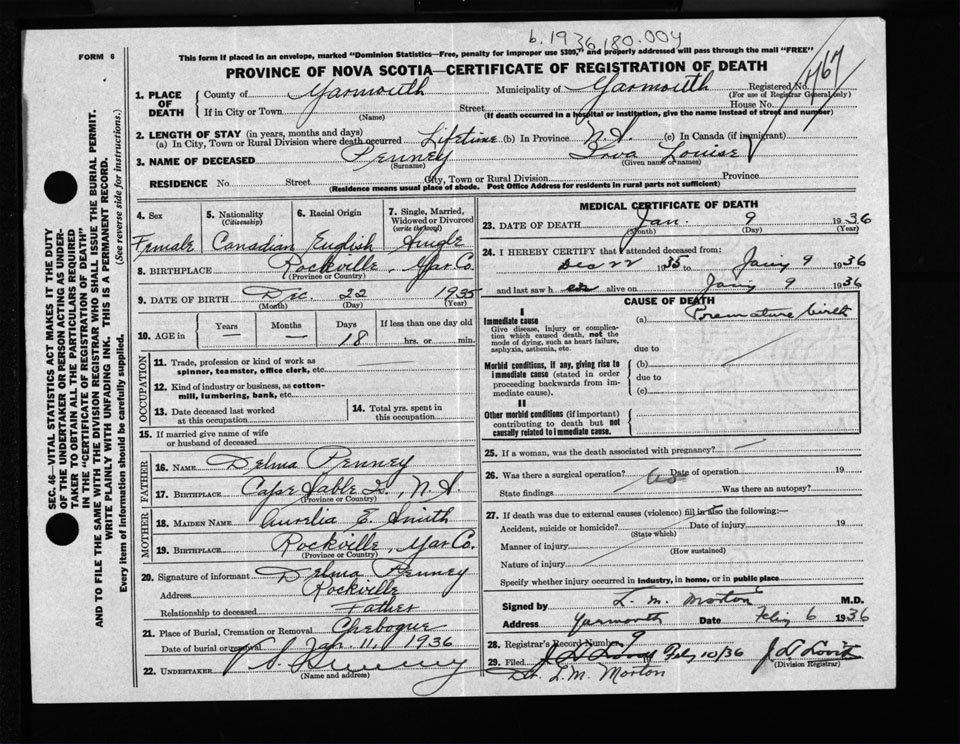 b. 1936 180.004
FORM 6
This form if placed in an envelope, marked "Dominion Statistics—Free, penalty for improper use $300," and properly addressed will pass through the mail "FREE"
PROVINCE OF NOVA SCOTIA—CERTIFICATE OF REGISTRATION OF DEATH
1. PLACE OF DEATH { County of Yarmouth Municipality of Yarmouth Registered No. 467
(For use of Registrar General only)
If in City or Town (Name) Street House No.
(If death occurred in a hospital or institution, give the name instead of street and number)
2. LENGTH OF STAY (in years, months and days)
(a) In City, Town or Rural Division where death occurred Lifetime (b) In Province N.S. (c) In Canada (if immigrant)
3. NAME OF DECEASED Penney Louise
(Surname) (Given name or names)
RESIDENCE No. Street City, Town or Rural Division Province
(Residence means usual place of abode. Post Office Address for residents in rural parts not sufficient)
4. Sex 5. Nationality (Citizenship) 6. Racial Origin 7. Single, Married, Widowed or Divorced (write the word)
Female Canadian English Single
8. BIRTHPLACE Rockville, Yar Co.
(Province or Country)
9. DATE OF BIRTH Dec. 22 1935
(Month) (Day) (Year)
10. AGE in Years Months Days If less than one day old
— 18 hrs. or min.
OCCUPATION
11. Trade, profession or kind of work as spinner, teamster, office clerk, etc.
12. Kind of industry or business, as cotton-mill, lumbering, bank, etc.
13. Date deceased last worked at this occupation
14. Total yrs. spent in this occupation
15. If married give name of wife or husband of deceased
FATHER
16. NAME Delma Penney
17. BIRTHPLACE Cape Sable Is., N.S.
(Province or Country)
MOTHER
18. MAIDEN NAME Aurelia E. Smith
19. BIRTHPLACE Rockville, Yar Co.
(Province or Country)
20. Signature of informant Delma Penney
Address Rockville
Relationship to deceased Father
21. Place of Burial, Cremation or Removal Chebogue
Date of burial or removal Jan. 11, 1936
22. UNDERTAKER
(Name and address)
MEDICAL CERTIFICATE OF DEATH
23. DATE OF DEATH Jan. 9 1936
(Month) (Day) (Year)
24. I HEREBY CERTIFY that I attended deceased from:
Dec 22 1935 to Jany 9 1936
and last saw h er alive on Jany 9 1936
CAUSE OF DEATH
I
Immediate cause
Give disease, injury or complication which caused death, not the mode of dying, such as heart failure, asphyxia, asthenia, etc.
(a) Premature birth
due to
Morbid conditions, if any, giving rise to immediate cause (stated in order proceeding backwards from immediate cause).
(b)
due to
(c)
II
Other morbid conditions (if important) contributing to death but not causally related to immediate cause.
25. If a woman, was the death associated with pregnancy?
26. Was there a surgical operation? no Date of operation 19
State findings Was there an autopsy?
27. If death was due to external causes (violence) fill in also the following:—
Accident, suicide or homicide? Date of injury 19
(State which)
Manner of injury
(How sustained)
Nature of injury
Specify whether injury occurred in industry, in home, or in public place
Signed by L. M. Morton M.D.
Address Yarmouth Date Feby 6 1936
28. Registrar's Record Number 9
29. Filed Feby 10/36
(Division Registrar)
Dr. L.M. Morton
SEC. 46—VITAL STATISTICS ACT MAKES IT THE DUTY
OF THE UNDERTAKER OR PERSON ACTING AS UNDER-
TAKER TO OBTAIN ALL THE PARTICULARS REQUIRED
IN THE "CERTIFICATE OF REGISTRATION OF DEATH"
AND TO FILE THE SAME WITH THE DIVISION REGISTRAR WHO SHALL ISSUE THE BURIAL PERMIT.
WRITE PLAINLY WITH UNFADING INK. THIS IS A PERMANENT RECORD.
Every item of information should be carefully supplied. (See reverse side for instructions.)